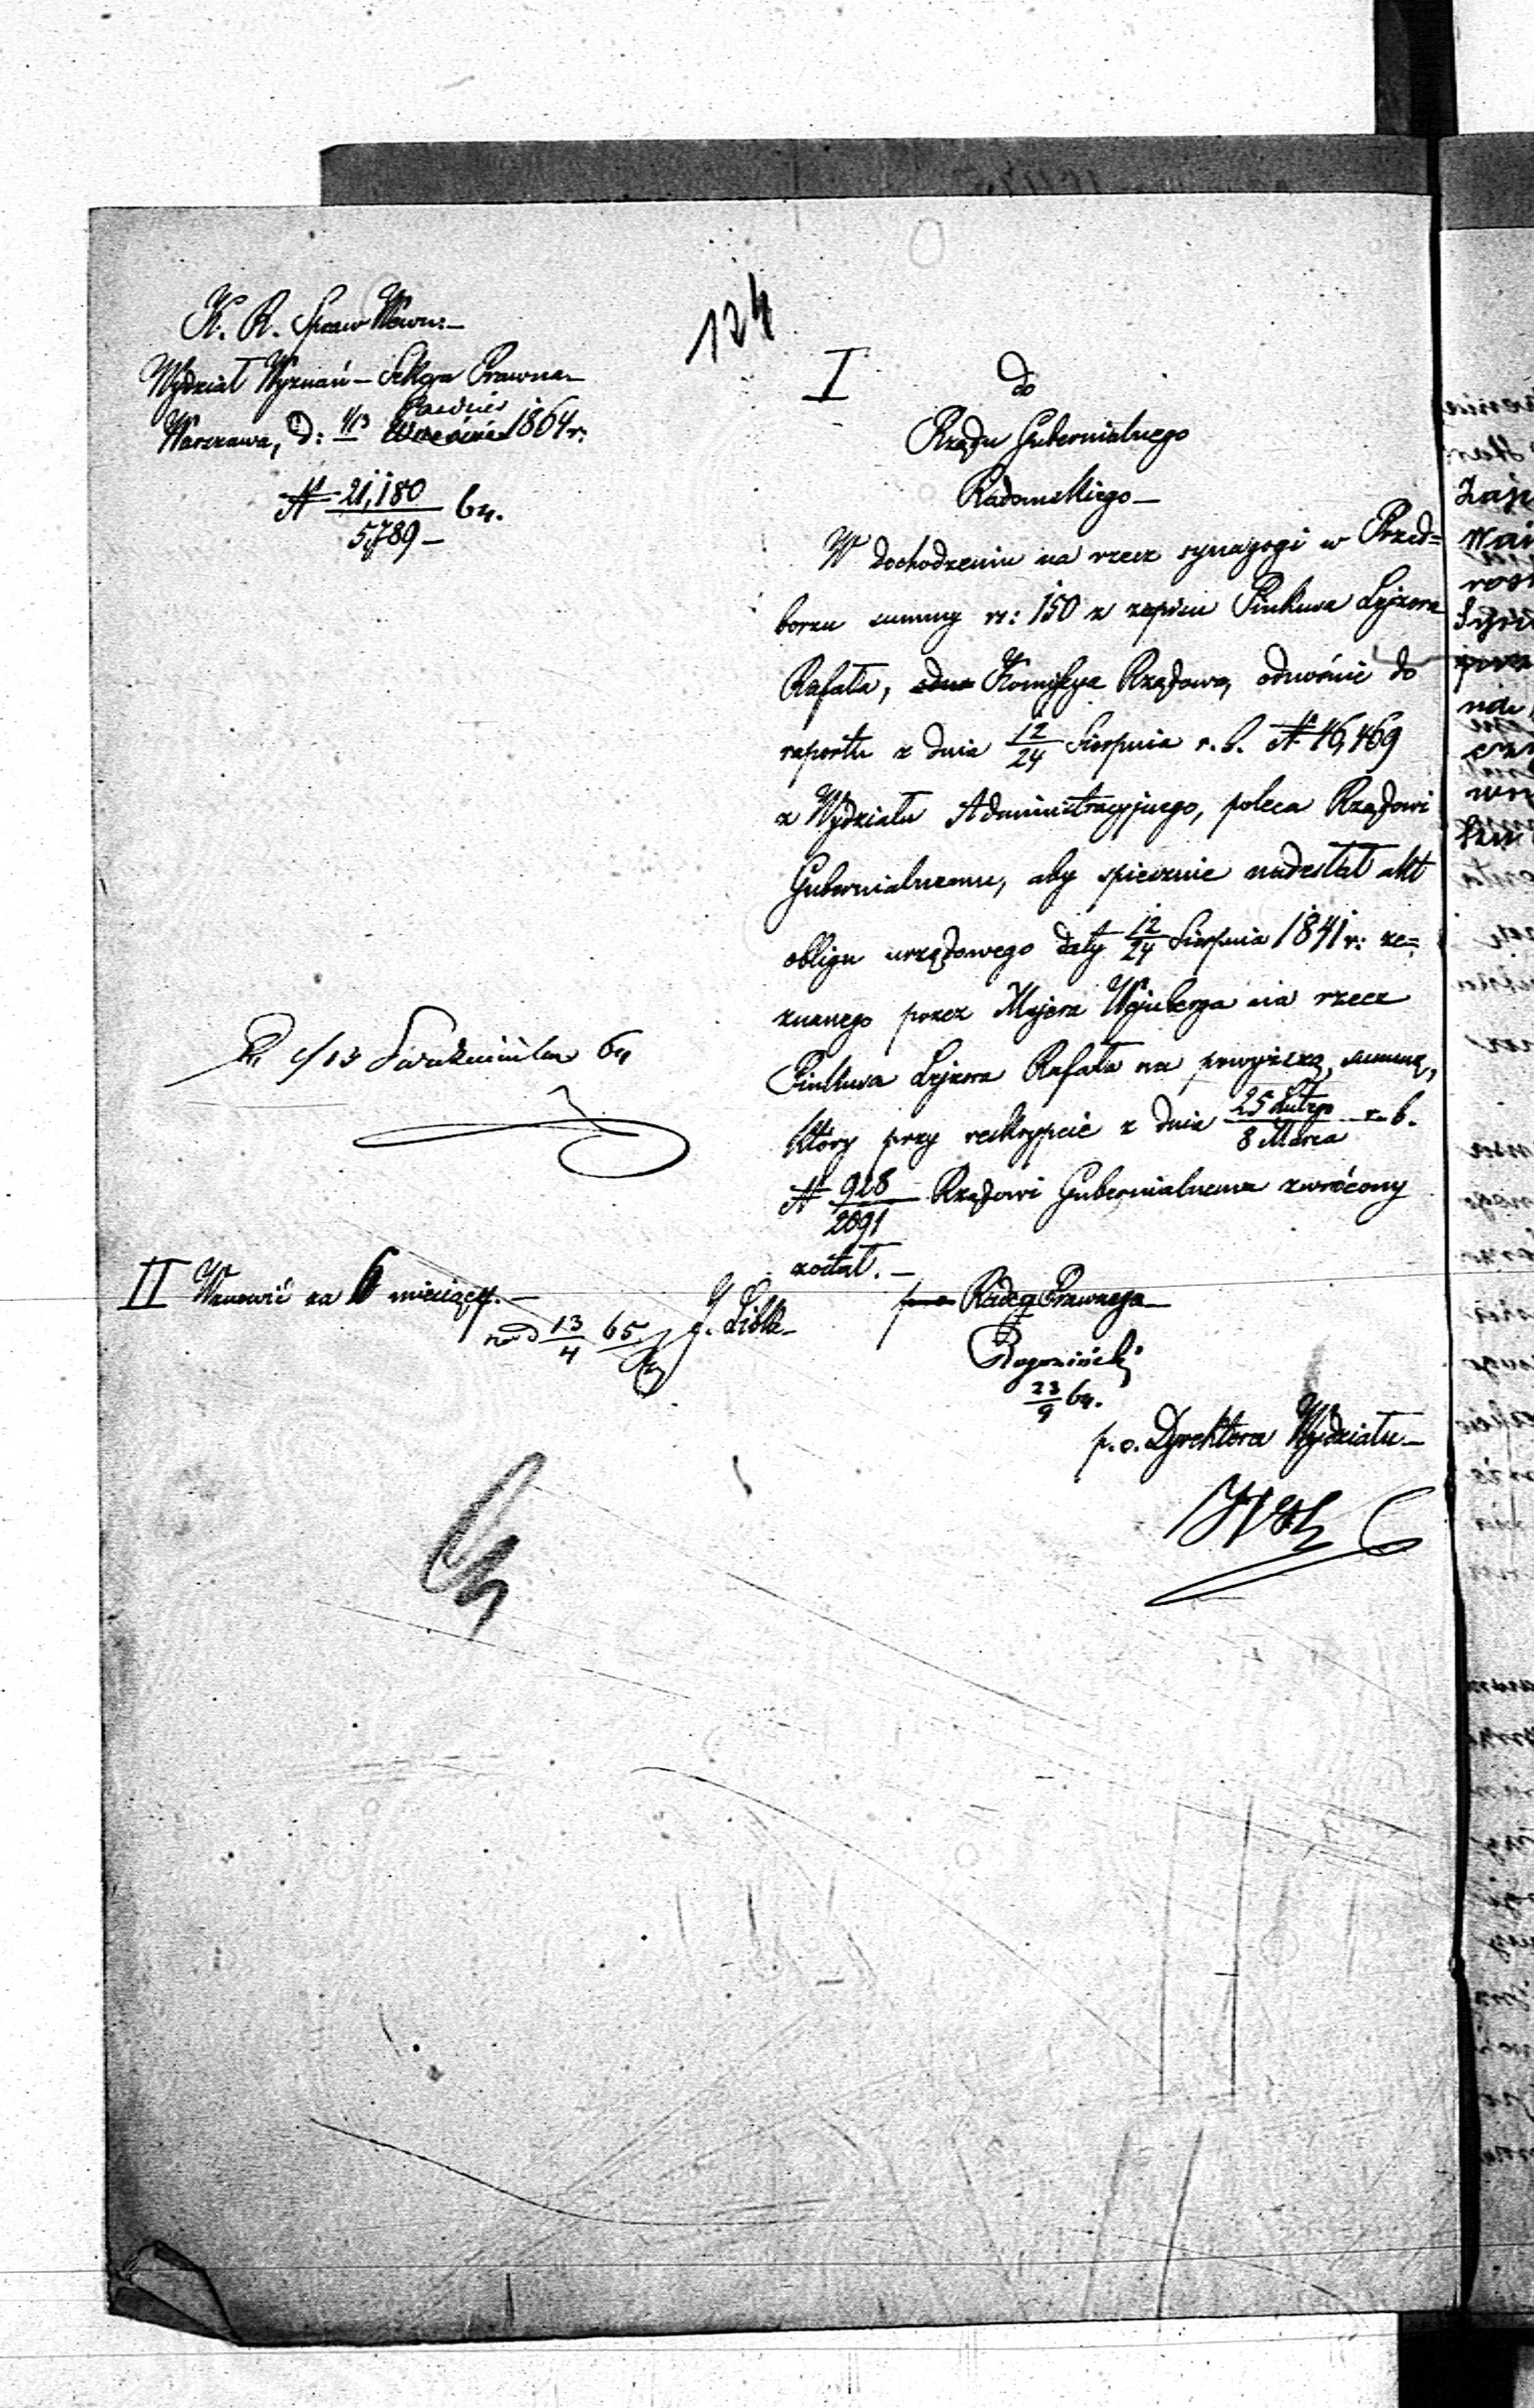 124
K. R. Spraw Wewn:
Wydział Wyznań – Sekcya Prawna
Paździer
Warszawa, d: 1/13 Września 1864 r:
N 21,180 / 5,789 – 64.
I
do
Rządu Gubernialnego
Radomskiego –
W dochodzeniu na rzecz synagogi w Przed=
borzu summy rs: 150 z zapisu Pinkusa Lejzora
Rafała, Komissya Rządowa, odnośnie do
raportu z dnia 12/24 Sierpnia r. b. N 46,469
z Wydziału Administracyjnego, poleca Rządowi
Gubernialnemu, aby spiesznie nadesłał akt
obligu urzędowego daty 12/24 Sierpnia 1841 r: ze=
znanego przez Majera Wajnberga na rzecz
Pinkusa Lejzora Rafała na powyższą summę,
który przy reskrypcie z dnia 25 Lutego / 8 Marca r. b.
N 928 / 2091 Rządowi Gubernialnemu zwrócony
został. –
4/13 Października 64
II Wznowić za 6 miesięcy. –
13/4 65
p. o. Radcy Prawnego –
23/9 64.
p. o. Dyrektora Wydziału –